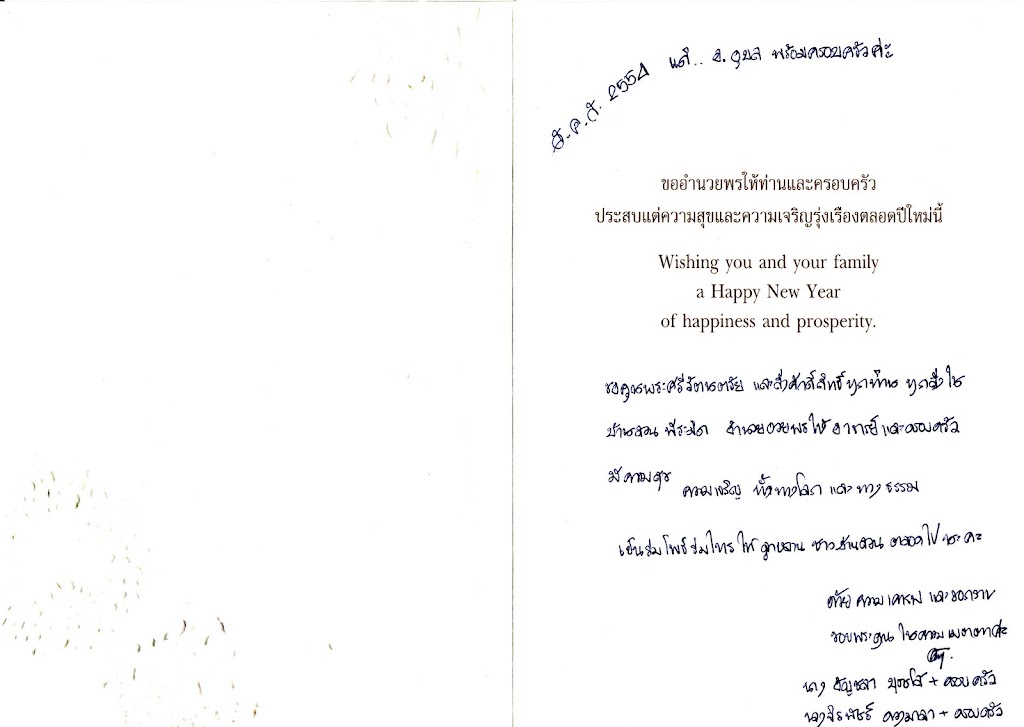 ส.ค.ส. 2554
แด่.. อ. อุบล พร้อมครอบครัวค่ะ
ขออำนวยพรให้ท่านและครอบครัว
ประสบแต่ความสุขและความเจริญรุ่งเรืองตลอดปีใหม่นี้
Wishing you and your family
a Happy New Year
of happiness and prosperity.
ขอคุณพระศรีรัตนตรัย และสิ่งศักดิ์สิทธิ์ทุกท่าน ทุกสิ่งใน
บ้านสวน อำนวยอวยพรให้ อาจารย์และครอบครัว
มีความสุข ความเจริญ ทั้งทางโลก และ ทางธรรม
เป็นร่มโพธิ์ร่มไทร ให้ ลูกหลาน ชาวบ้านสวน ตลอดไป นะคะ
ด้วยความเคารพ และขอกราบ
ขอบพระคุณ ในความเมตตาค่ะ
นาง + ครอบครัว
+ ครอบครัว